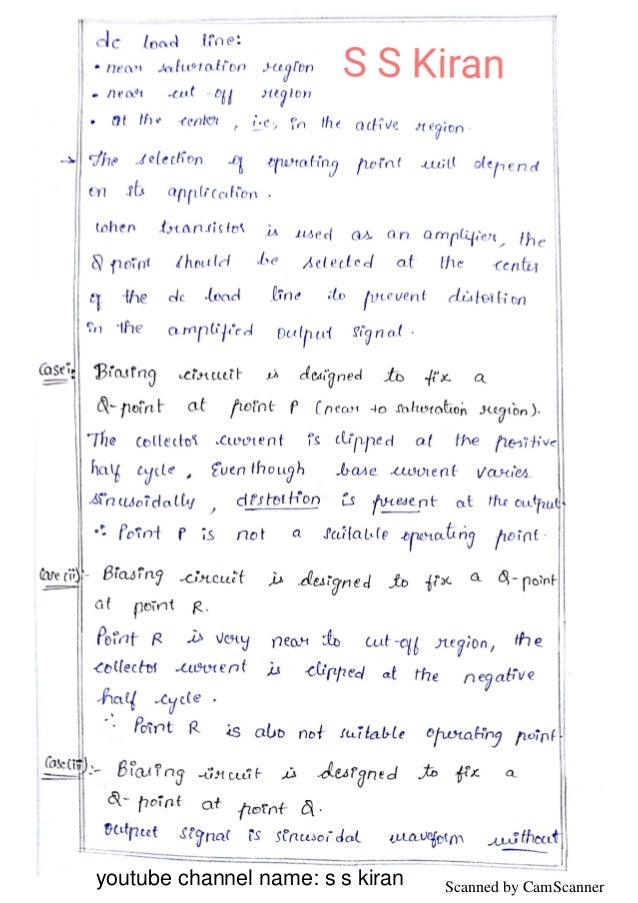 dc load line:
S S Kiran
• near saturation region
• near cut-off region
• at the center, i.e, in the active region.
→ The selection of operating point will depend
on its application.
when transistor is used as an amplifier, the
Q point should be selected at the center
of the dc load line to prevent distortion
in the amplified output signal.
Case i: Biasing circuit is designed to fix a
Q-point at point P (near to saturation region).
The collector current is clipped at the positive
half cycle, Even though base current varies
sinusoidally, distortion is present at the output.
∴ Point P is not a suitable operating point.
Case (ii):- Biasing circuit is designed to fix a Q-point
at point R.
Point R is very near to cut-off region, the
collector current is clipped at the negative
half cycle.
∴ Point R is also not suitable operating point.
Case (iii):- Biasing circuit is designed to fix a
Q-point at point Q.
output signal is sinusoidal waveform without
youtube channel name: s s kiran
Scanned by CamScanner